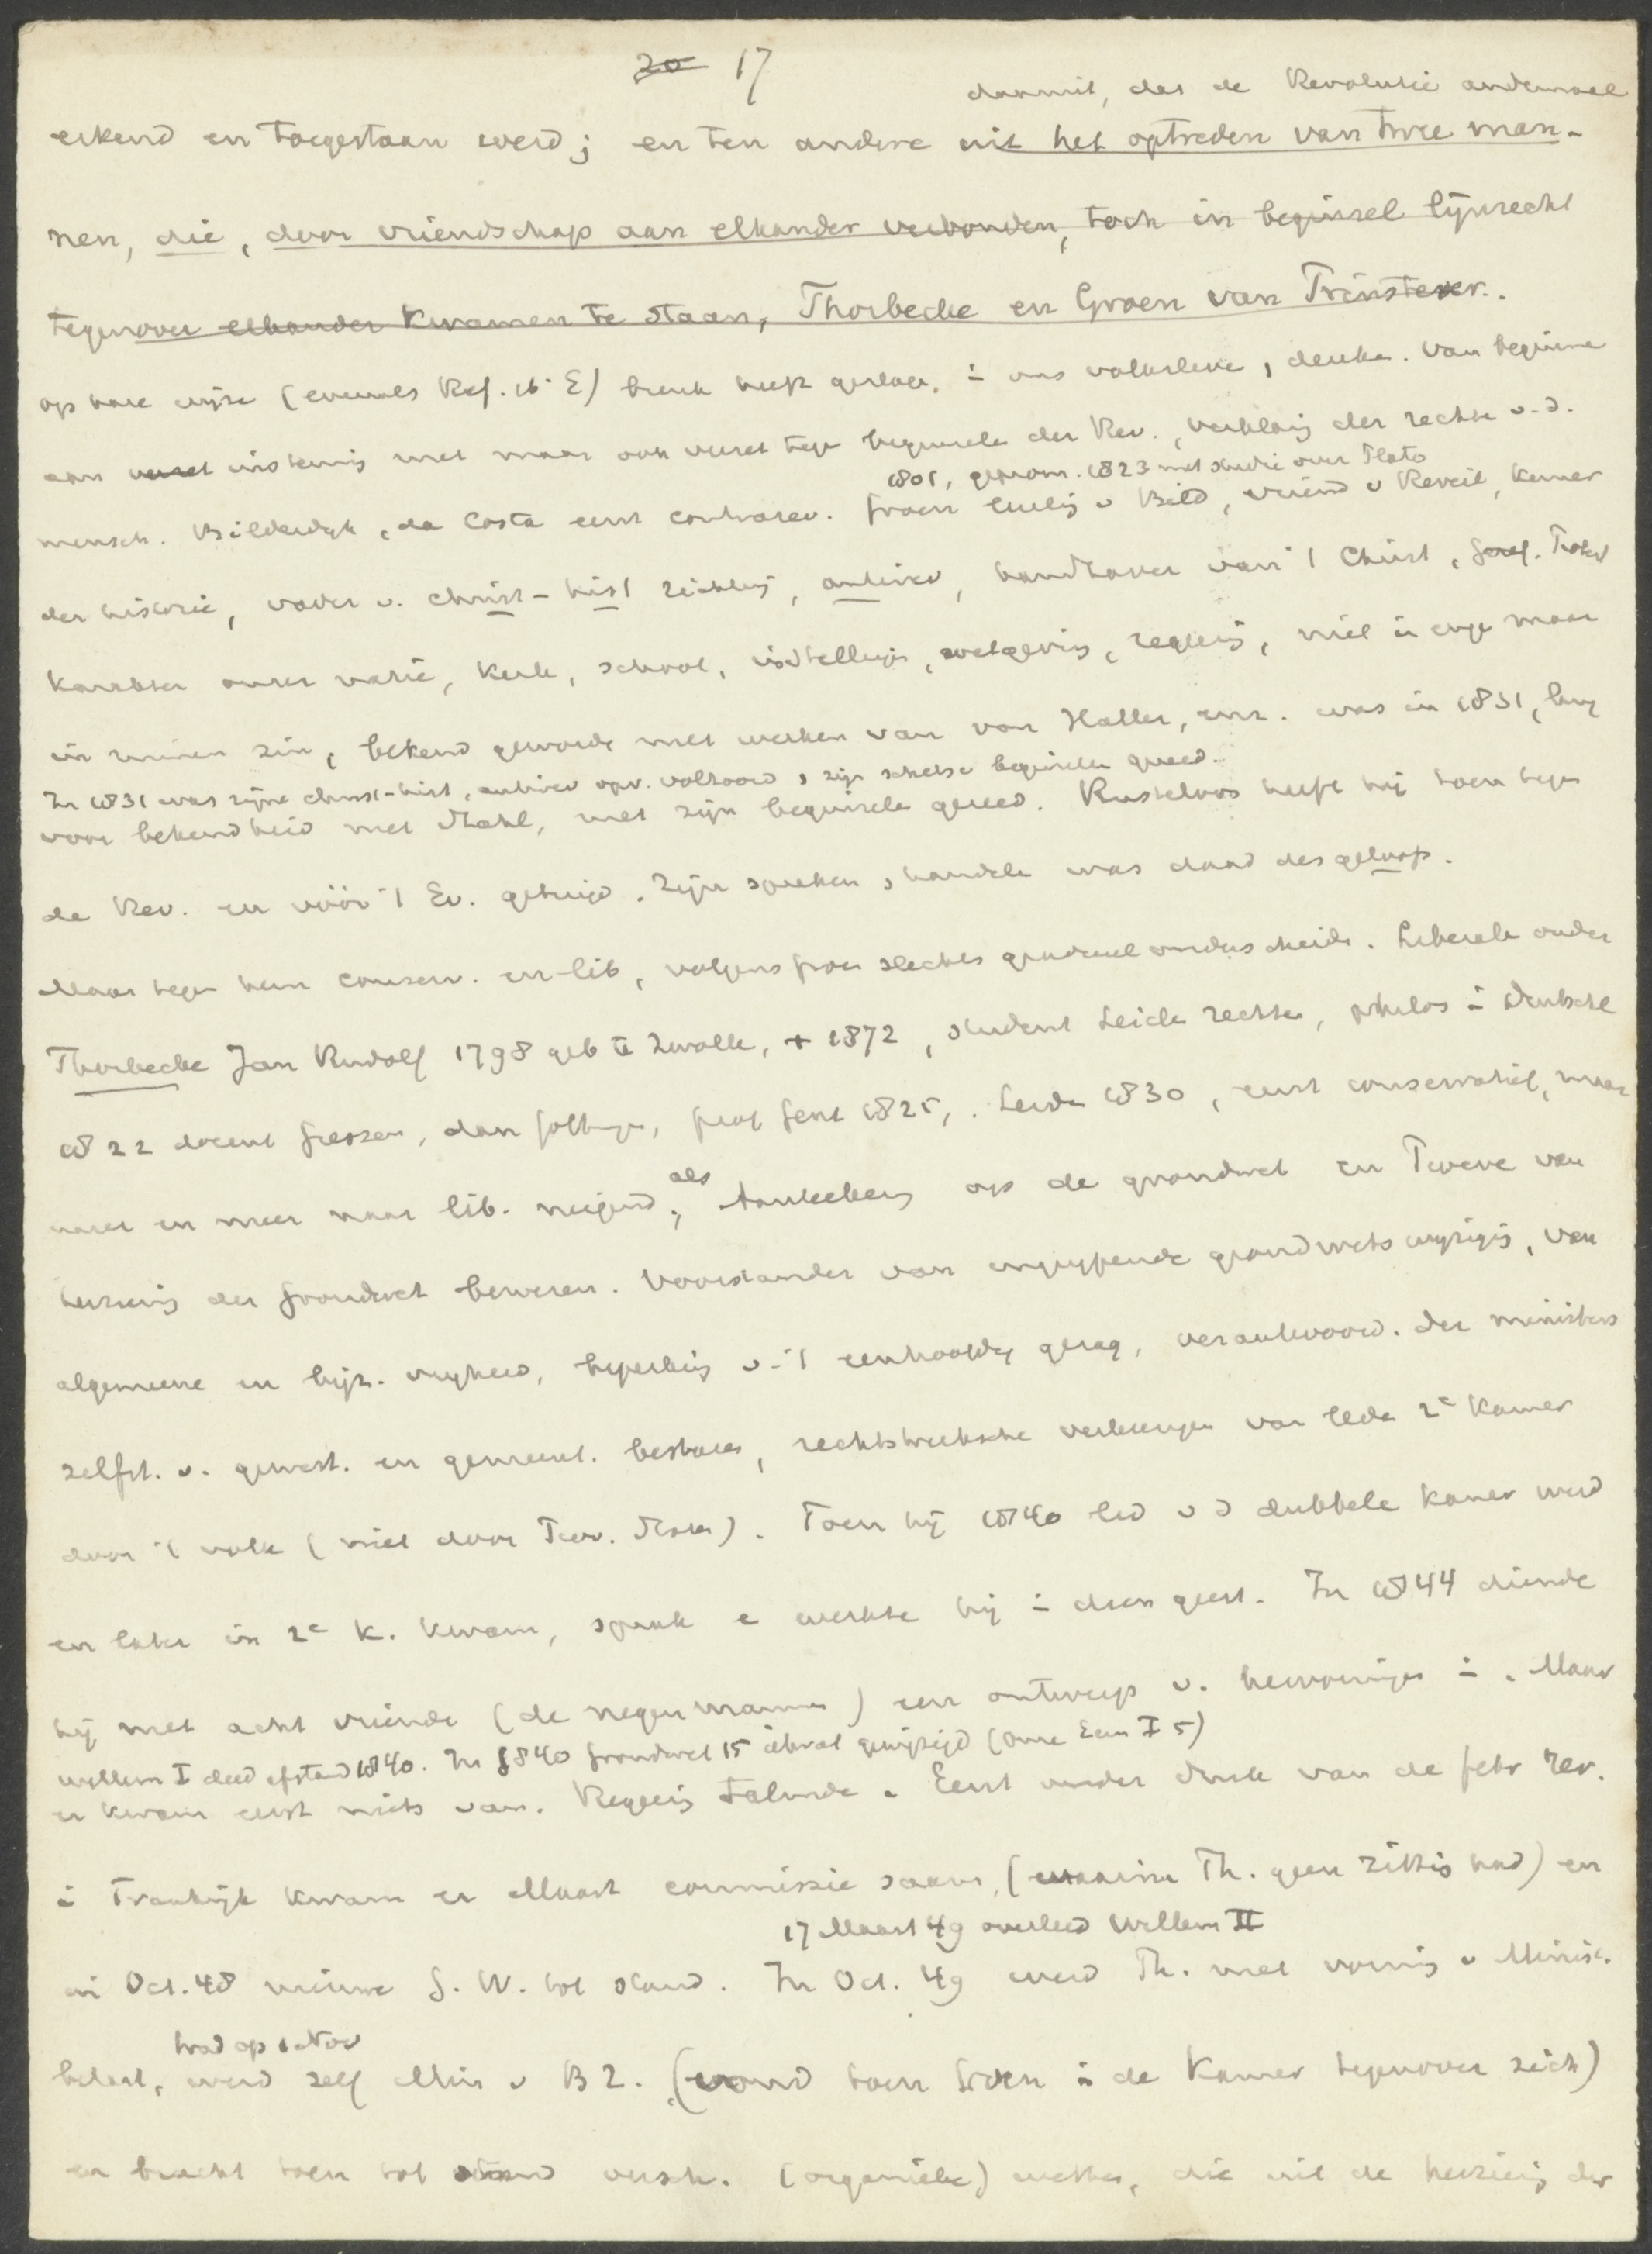 20 17
daaruit, dat de Revolutie andermaal
erkend en toegestaan werd; en ten andere uit het optreden van twee man-
nen, die, door vriendschap aan elkander verbonden, toch in beginsel lijnrecht
tegenover elkander kwamen te staan, Thorbecke en Groen van Prinsterer.
op hare wijze (evenals Ref. 16e E) breuk heeft geslagen in ons volksleven, denken. Van beginne
aan verzet instemming met maar ook verzet tegen beginselen der Rev., verklaring der rechten v. d.
1801, geprom. 1823 met studie over Plato
mensch. Bilderdijk, da Costa eerst contrarev. Groen leerling v Bild, vriend v Reveil, kenner
der historie, vader v. christ-hist richting, antirev, handhaver van 't Christ, Geref. Protest
karakter onzer natie, kerk, school, instellingen, wetgeving, regering, niet in enge maar
in ruimen zin, bekend geworden met werken van von Haller, enz. was in 1831, lang
In 1831 was zijne christ-hist, antirev opv. voltooid, zijn schets beginselen gereed.
voor bekendheid met Stahl, met zijn beginselen gereed. Rusteloos heeft hij toen tegen
de Rev. en vóór 't Ev. getuigd. Zijn spreken, handelen was daad des geloofs.
Maar tegen hem conserv. en lib, volgens Groen slechts gradueel onderscheiden. Liberalen onder
Thorbecke Jan Rudolf 1798 geb te Zwolle, + 1872, student Leiden rechten, philos in Duitschl
1822 docent Giessen, dan Göttingen, prof Gent 1825, Leiden 1830, eerst conservatief, maar
meer en meer naar lib. neigend, als Aanteekening op de grondwet en Proeve van
herziening der Grondwet bewezen. Voorstander van ingrijpende grondwetswijziging, van
algemeene en bijz. vrijheid, beperking v. 't eenhoofdig gezag, verantwoord. der ministers
zelfst. v. gewest. en gemeent. besturen, rechtstreeksche verkiezingen van leden 2e Kamer
door 't volk (niet door Prov. Staten). Toen hij 1840 lid v d dubbele kamer werd
en later in 2e K. kwam, sprak e werkte hij in dien geest. In 1844 diende
hij met acht vrienden (de negenmannen) een ontwerp v. hervorming in. Maar
Willem I deed afstand 1840. In 1840 Grondwet 15 ... gewijzigd (Onze Eeuw I 5)
er kwam eerst niets van. Regering talmde. Eerst onder druk van de febr rev.
in Frankrijk kwam er Maart commissie saam, (waarin Th. geen zitting had) en
17 Maart 49 overleed Willem II
in Oct. 48 nieuwe G. W. tot stand. In Oct. 49 werd Th. met vorming v Minist.
trad op 1 Nov
belast, werd zelf Min v B Z. (vond toen Groen in de Kamer tegenover zich)
en bracht toen tot stand versch. (organieke) wetten, die uit de herziening der